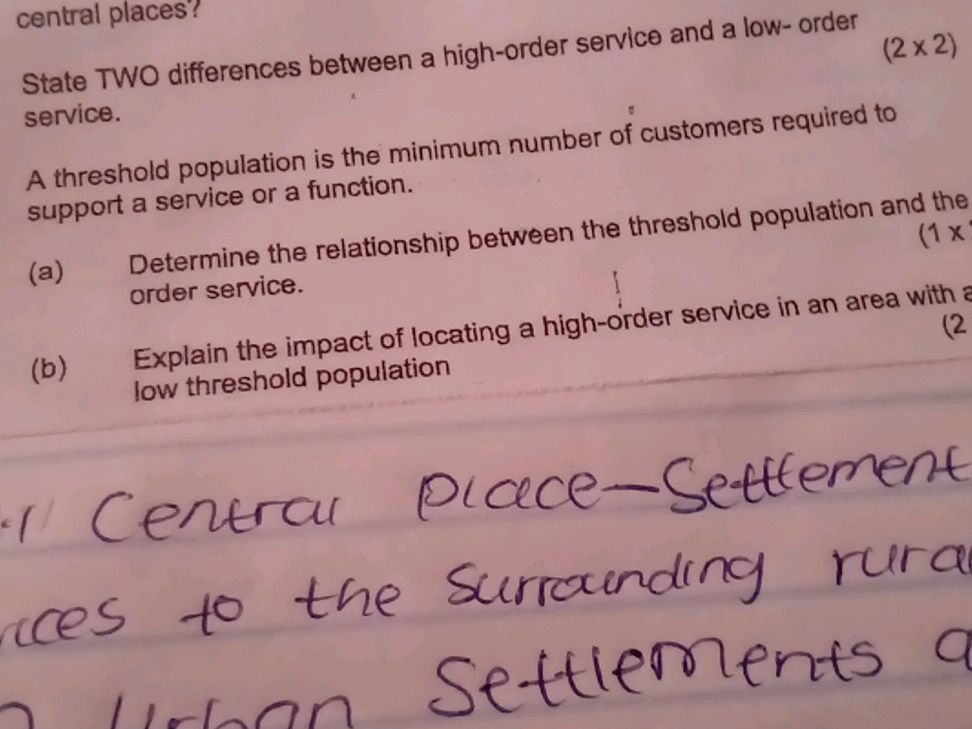 central places?
State TWO differences between a high-order service and a low- order
service. (2 x 2)
A threshold population is the minimum number of customers required to
support a service or a function.
(a) Determine the relationship between the threshold population and the
order service. (1 x
(b) Explain the impact of locating a high-order service in an area with a
low threshold population (2
.1 Central place-Settlement
to the surrounding rural
Urban Settlements a